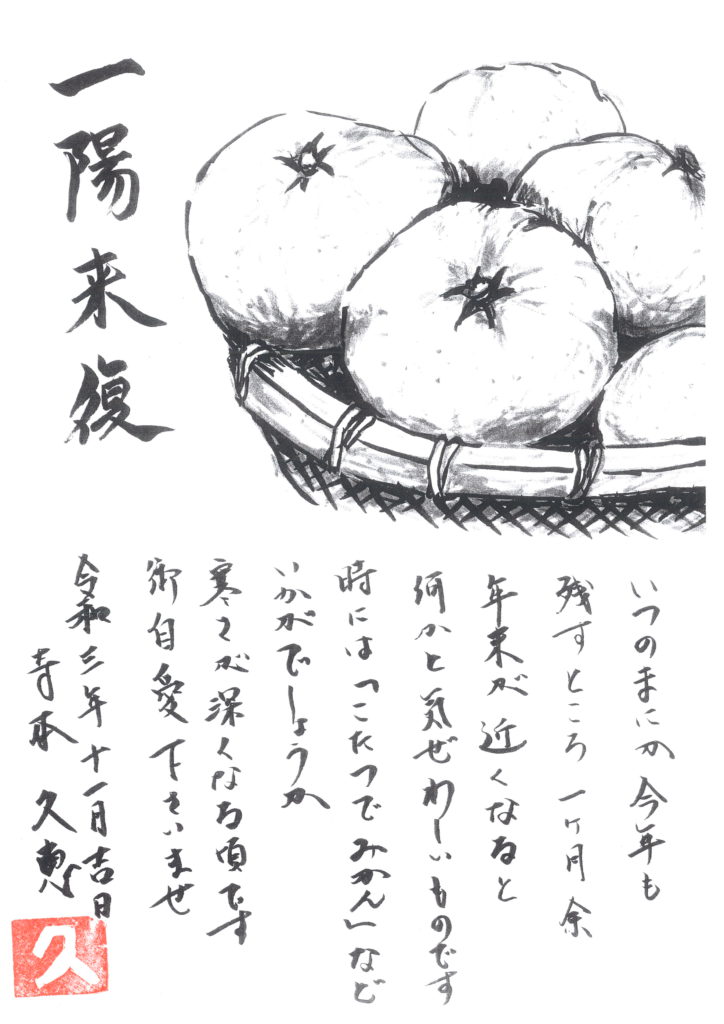 一陽来復
いつのまにか今年も
残すところ一ヶ月余
年末が近くなると
何かと気ぜわしいものです
時には「こたつでみかん」など
いかがでしょうか
寒さが深くなる頃です
御自愛下さいませ
令和三年十一月吉日
寺本久恵
久